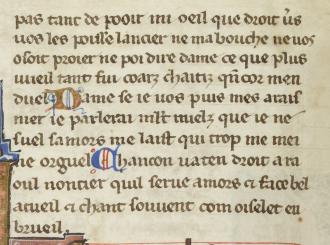 pas tant de pooir mi oeil que droit ũs
uos les poisse lancier ne ma bouche ne uos
osoit proier ne poi dire dame ce que plus
uueil tant fui coarz chaitis qũ cor men
dueil Dame se ie uos puis mes arais
nier ie parlerai mlt mielz que ie ne
suel samors me laist qui trop me mei
ne orguel Chancon uaten droit a ra
oul noncier quil serue amors ⁊ face bel
acueil ⁊ chant souuent com oiselet en
brueil.